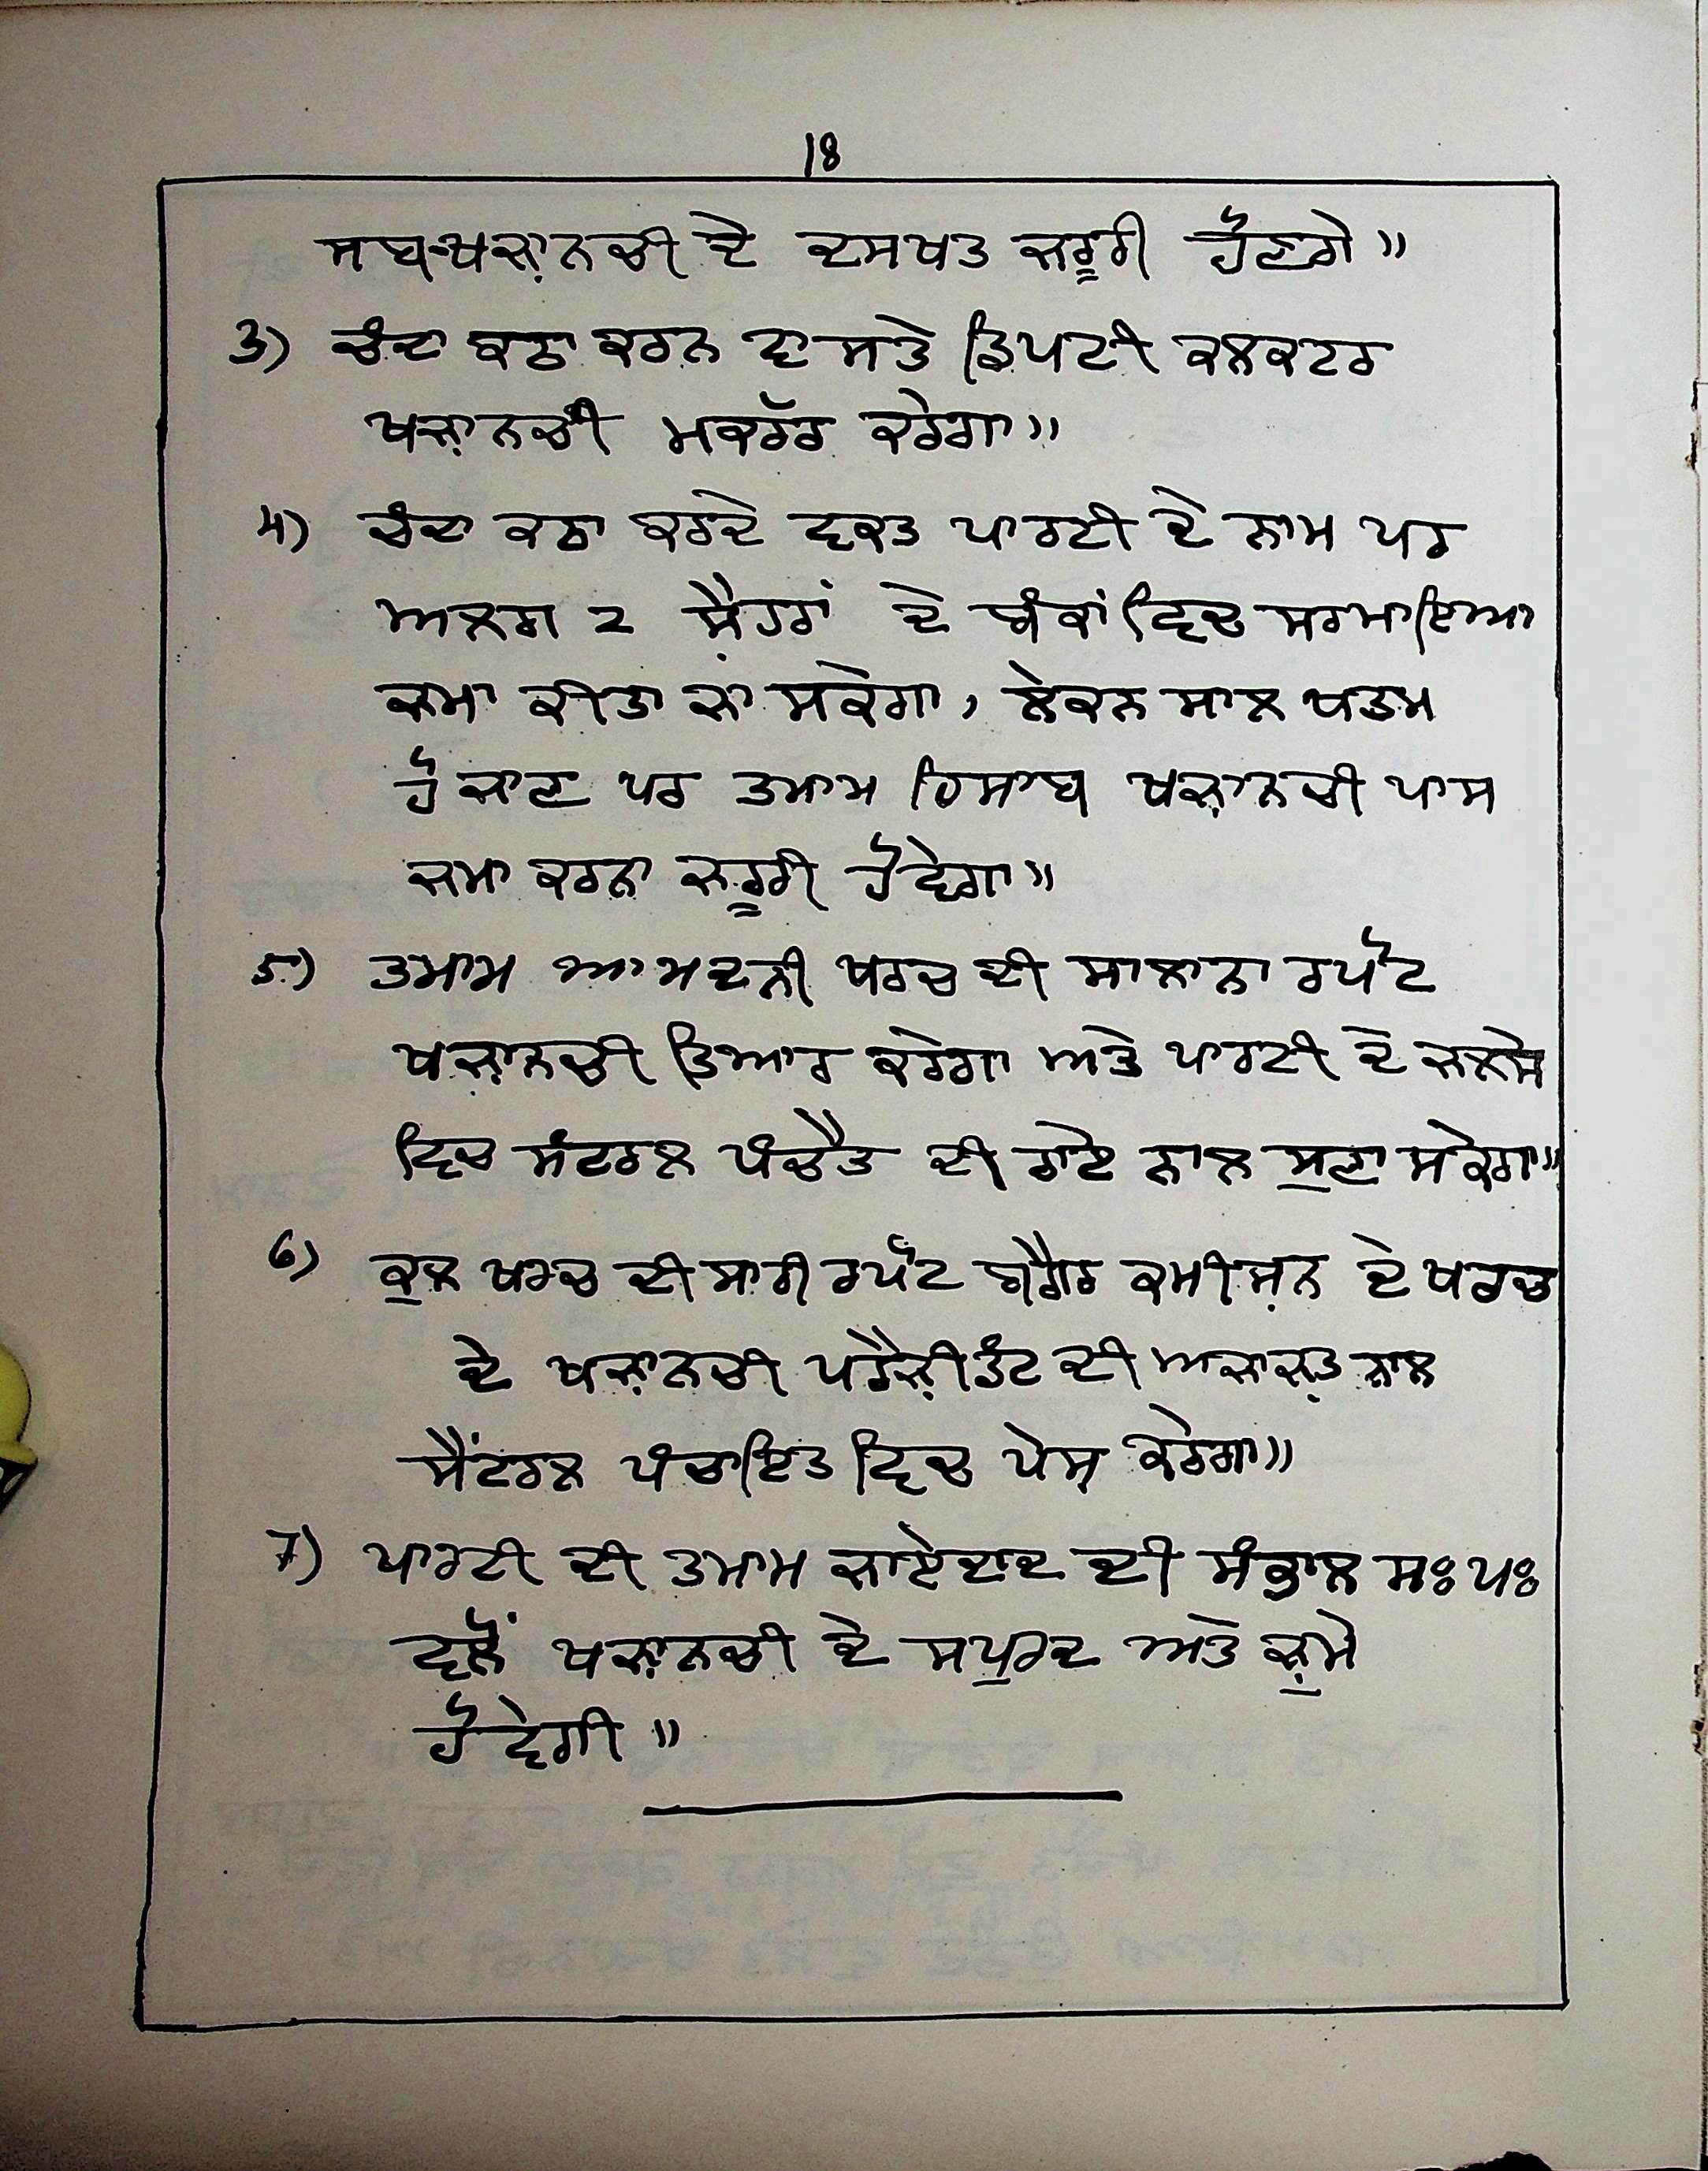 18
ਸਬ-ਖਜ਼ਾਨਚੀ ਦੇ ਦਸਖਤ ਜਰੂਰੀ ਹੋਣਗੇ॥
3) ਚੰਦਾ ਕਠਾ ਕਰਨ ਵਾਸਤੇ ਡਿਪਟੀ ਕਲਕਟਰ
ਖਜ਼ਾਨਚੀ ਮਕਰੱਰ ਕਰੇਗਾ॥
4) ਚੰਦਾ ਕਠਾ ਕਰਦੇ ਵਕਤ ਪਾਰਟੀ ਦੇ ਨਾਮ ਪਰ
ਅਲਗ 2 ਸ਼ੈਹਰਾਂ ਦੇ ਬੰਕਾਂ ਵਿਚ ਸਰਮਾਇਆ
ਜਮਾ ਕੀਤਾ ਜਾ ਸਕੇਗਾ, ਲੇਕਨ ਸਾਲ ਖਤਮ
ਹੋ ਜਾਣ ਪਰ ਤਮਾਮ ਹਿਸਾਬ ਖਜ਼ਾਨਚੀ ਪਾਸ
ਜਮਾ ਕਰਨਾ ਜਰੂਰੀ ਹੋਵੇਗਾ॥
5) ਤਮਾਮ ਆਮਦਨੀ ਖਰਚ ਦੀ ਸਾਲਾਨਾ ਰਪੋਟ
ਖਜ਼ਾਨਚੀ ਤਿਆਰ ਕਰੇਗਾ ਅਤੇ ਪਾਰਟੀ ਦੇ ਜਲਸੇ
ਵਿਚ ਸੰਟਰਲ ਪੰਚੈਤ ਦੀ ਰਾਏ ਨਾਲ ਸੁਣਾ ਸਕੇਗਾ॥
6) ਕੁਲ ਖਰਚ ਦੀ ਸਾਰੀ ਰਪੋਟ ਬਗੈਰ ਕਮੀਸ਼ਨ ਦੇ ਖਰਚ
ਦੇ ਖਜ਼ਾਨਚੀ ਪਰੈਜ਼ੀਡੰਟ ਦੀ ਅਜਾਜ਼ਤ ਨਾਲ
ਸੈਂਟਰਲ ਪੰਚਾਇਤ ਵਿਚ ਪੇਸ਼ ਕਰੇਗਾ॥
7) ਪਾਰਟੀ ਦੀ ਤਮਾਮ ਜਾਏਦਾਦ ਦੀ ਸੰਭਾਲ ਸ॰ ਪ॰
ਵਲੋਂ ਖਜ਼ਾਨਚੀ ਦੇ ਸਪੁਰਦ ਅਤੇ ਜ਼ੁਮੇ
ਹੋਵੇਗੀ॥